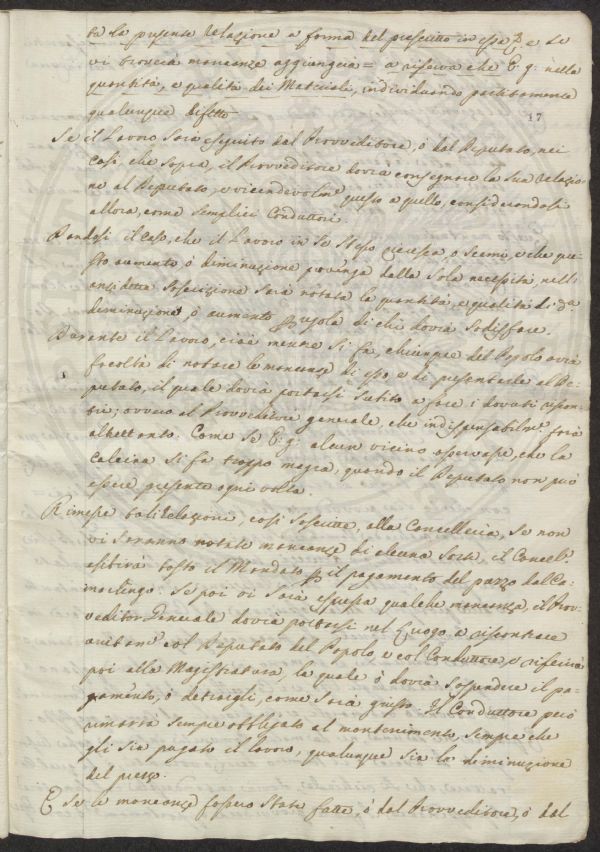 ta la presente relazione a forma del prescritto in essa P. e se
vi troverà mancanze aggiungerà = a riserva che E. g: nella
quantità, o qualità dei Materiali, individuando partitamente
qualunque difetto
17
Se il Lavoro sarà eseguito dal Provveditore, ò dal Deputato, nei
casi, che sopra, il Provveditore dovrà consegnare la sua relazio-
ne al Deputato, o vicendevolmte questo a quello, considerandosi
allora, come semplici Conduttori.
Dandosi il caso, che il Lavoro in se stesso cresca, o scemi, e che que-
sto aumento ò diminuzione provenga dalla sola necessità, nell'
anzidetta soscrizione sarà notata la quantità, e qualità di da
diminuzione, ò aumento regola di chi dovrà sodisfare.
Durante il Lavoro, cioè mentre si fa, chiunque del Popolo avrà
facoltà di notare le mancanze di esso e di presentarle al De-
putato, il quale dovrà portarsi subito a fare i dovuti riscon-
tri; ovvero al Provveditore generale, che indispensabilmte farà
altrettanto. Come se E. g: alcun vicino osservasse, che la
calcina si fa troppo magra, quando il Deputato non può
essere presente ogni volta.
Rimesse tali relazioni, così soscritte, alla Cancelleria, se non
vi saranno notate mancanze di alcuna sorte, il Cancelre
esibirà tosto il Mandato p il pagamento del prezzo dal Ca-
marlingo. Se poi vi sarà espressa qualche mancanza, il Prov-
veditor Generale dovrà portarsi nel Luogo a riscontrare
unitamte col Deputato del Popolo e col Conduttore, e riferirà
poi alla Magistratura, la quale ò dovrà sospendere il pa-
gamento, ò detrargli, come sarà giusto. Il Conduttore però
rimarrà sempre obbligato al mantenimento, sempre che
gli sia pagato il lavoro, qualunque sia la diminuzione
del prezzo.
E se le mancanze fossero state fatte, ò dal Provveditore, ò dal